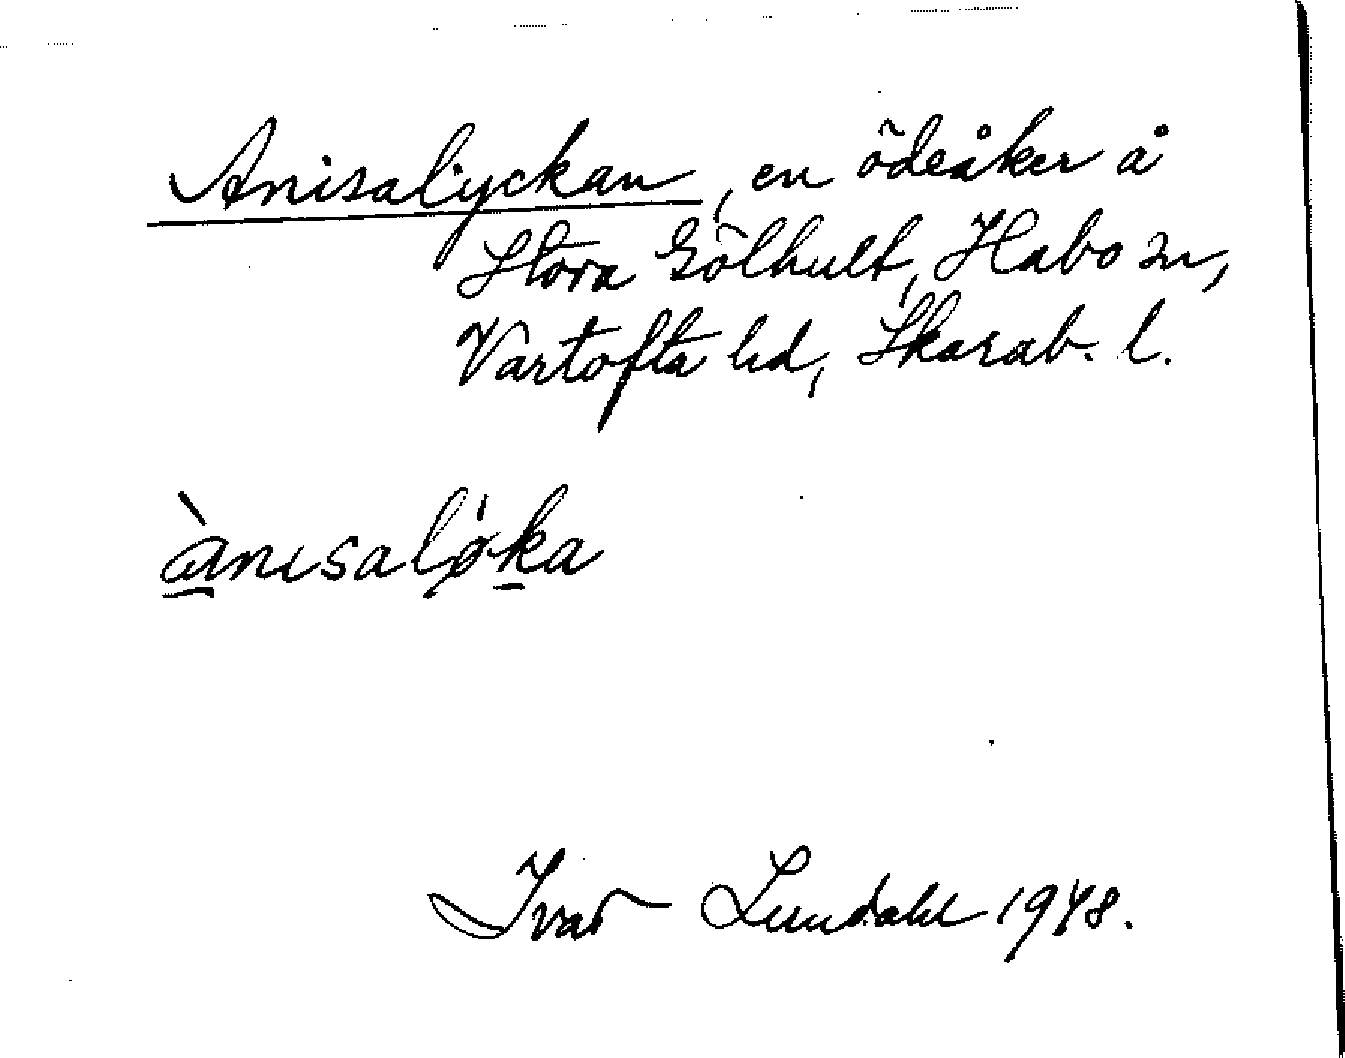 Anisalyckan, en ödeåker å
Stora Gölhult, Habo sn,
Vartofta hd, Skarab. l.
ànisaløka
Ivar Lundahl 1948.